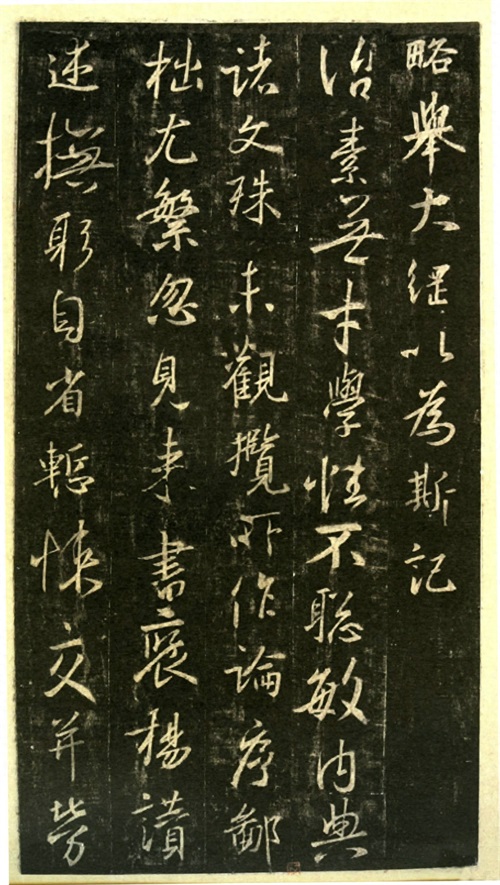 略舉大綱以為斯記
治素無才學性不聰敏內典
諸文殊未觀攬所作論序鄙
拙尤繁忽見來書褒揚讚
述撫躬自省慙悚交并勞